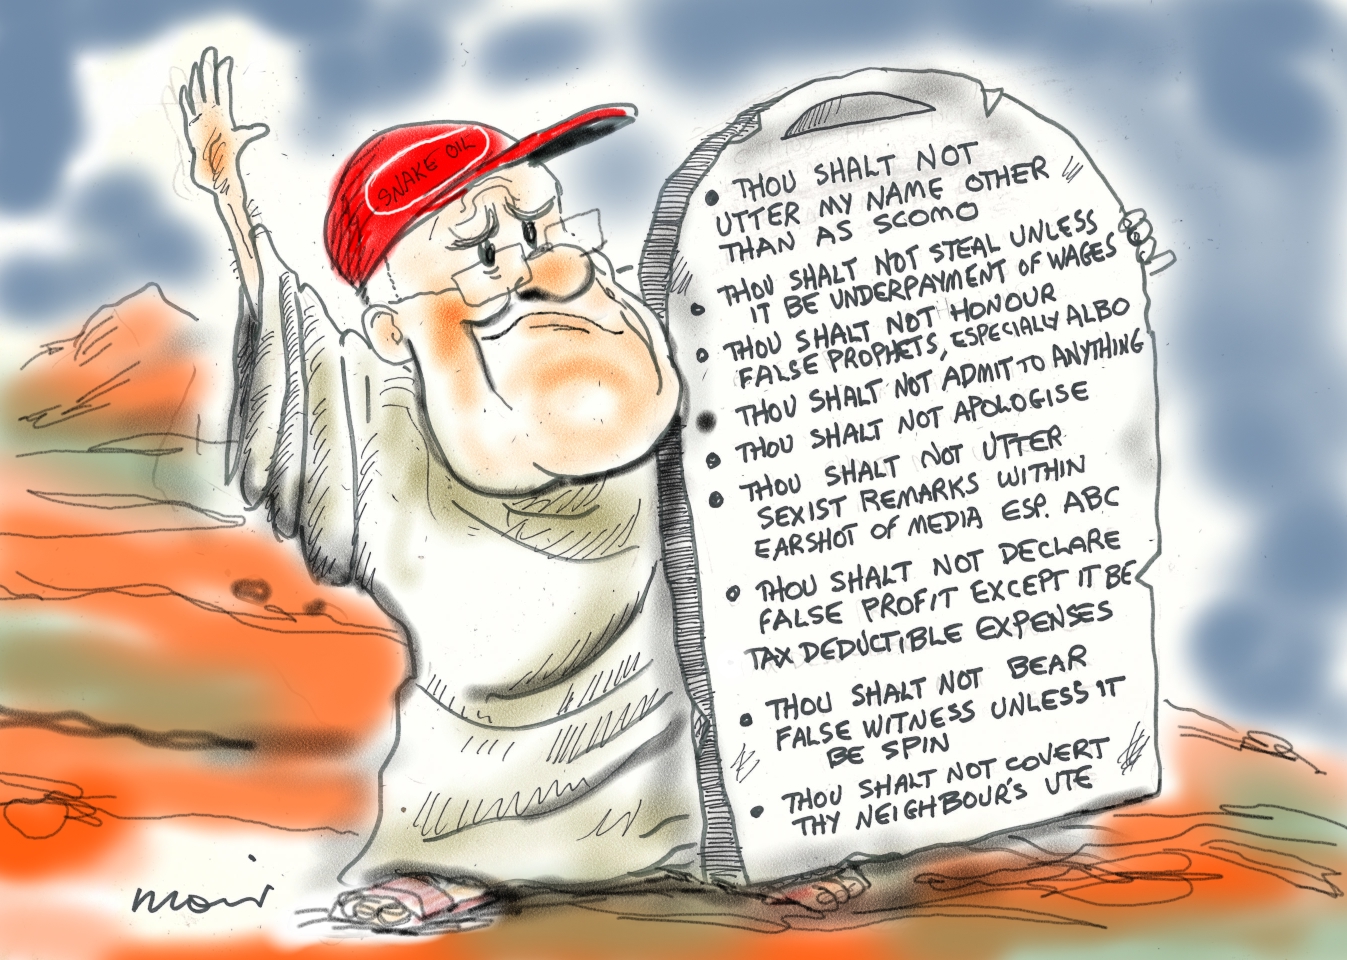 SNAKE OIL
• THOU SHALT NOT
UTTER MY NAME OTHER
THAN AS SCOMO
• THOU SHALT NOT STEAL UNLESS
IT BE UNDERPAYMENT OF WAGES
• THOU SHALT NOT HONOUR
FALSE PROPHETS, ESPECIALLY ALBO
• THOU SHALT NOT ADMIT TO ANYTHING
• THOU SHALT NOT APOLOGISE
• THOU SHALT NOT UTTER
SEXIST REMARKS WITHIN
EARSHOT OF MEDIA ESP. ABC
• THOU SHALT NOT DECLARE
FALSE PROFIT EXCEPT IT BE
TAX DEDUCTIBLE EXPENSES
• THOU SHALT NOT BEAR
FALSE WITNESS UNLESS IT
BE SPIN
• THOU SHALT NOT COVERT
THY NEIGHBOUR'S UTE
moir